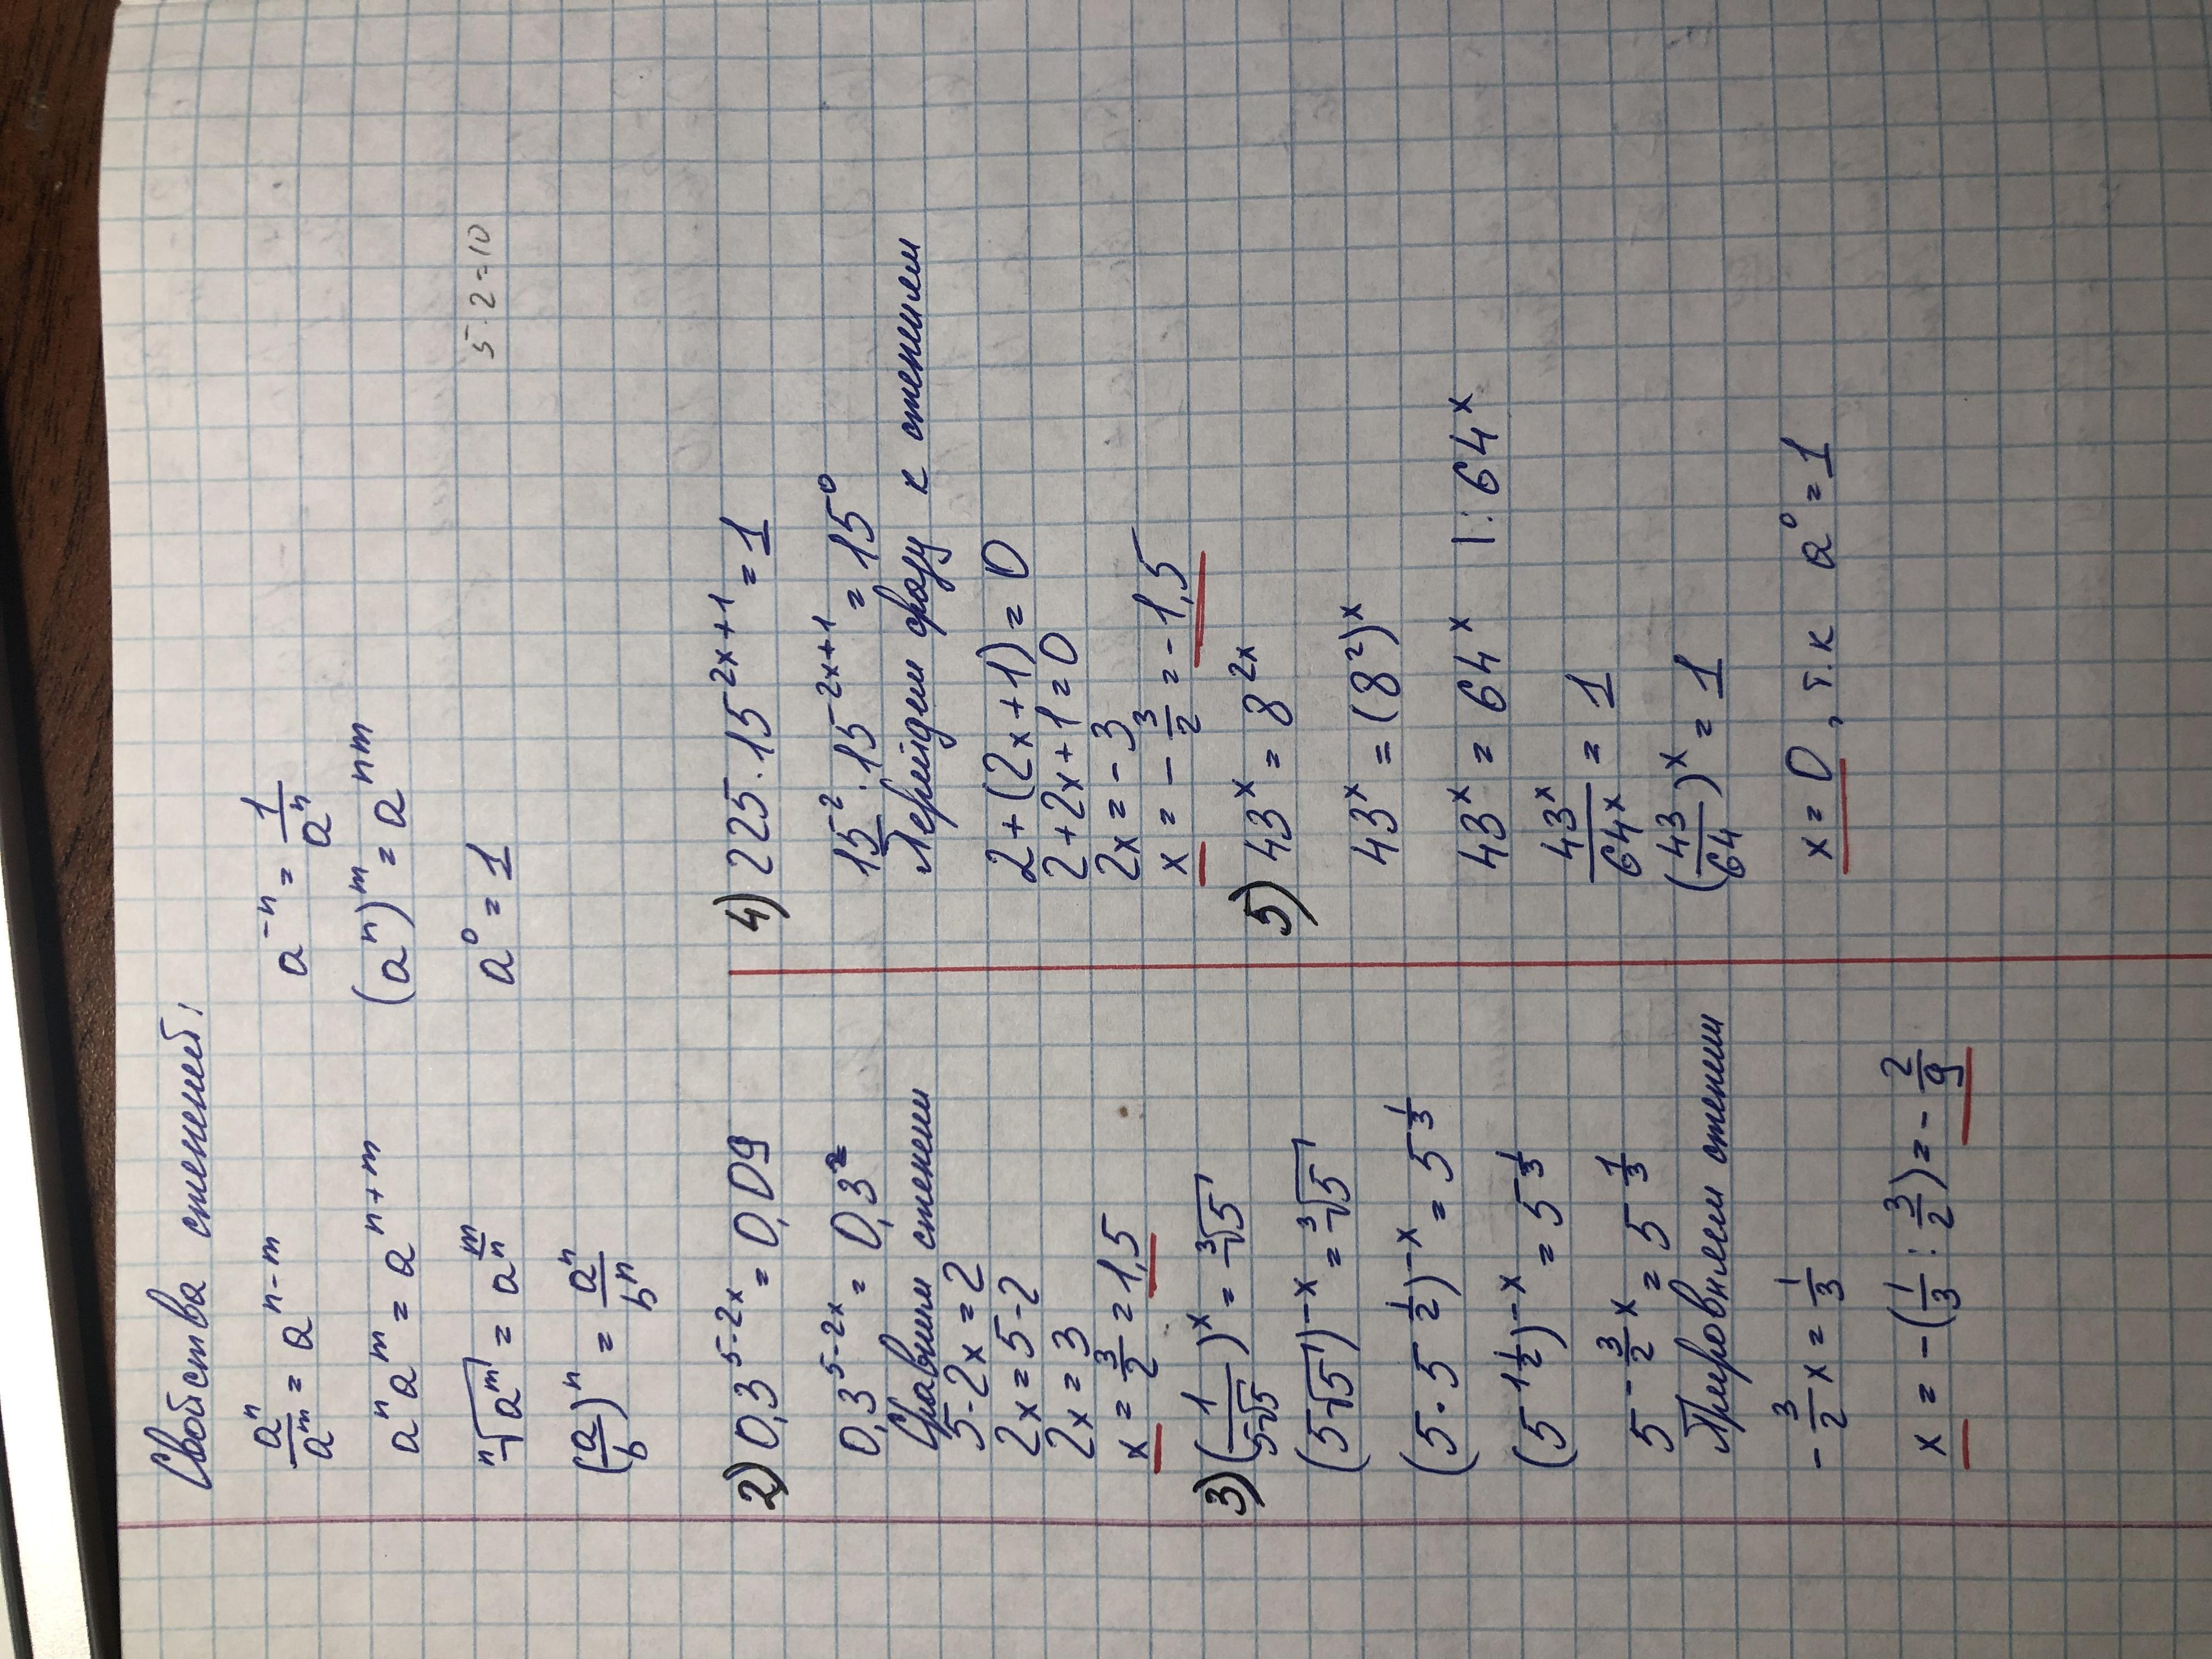 Свойства степеней:
aⁿ/aᵐ = aⁿ⁻ᵐ
aⁿaᵐ = aⁿ⁺ᵐ
ⁿ√(aᵐ) = a^(m/n)
(a/b)ⁿ = aⁿ/bⁿ
a⁻ⁿ = 1/aⁿ
(aⁿ)ᵐ = aⁿᵐ
a⁰ = 1
5·2=10
2) 0,3^(5-2x) = 0,09
0,3^(5-2x) = 0,3²
Сравним степени
5-2x=2
2x=5-2
2x=3
x = 3/2 = 1,5
3) (1/(5√5))^x = ³√5
(5√5)^(-x) = ³√5
(5·5^(1/2))^(-x) = 5^(1/3)
(5^(1 1/2))^(-x) = 5^(1/3)
5^(-3/2 x) = 5^(1/3)
Приравняем степени
-3/2 x = 1/3
x = -(1/3 : 3/2) = -2/9
4) 225·15^(2x+1) = 1
15²·15^(2x+1) = 15⁰
Перейдем сразу к степеням
2+(2x+1)=0
2+2x+1=0
2x=-3
x = -3/2 = -1,5
5) 43^x = 8^(2x)
43^x = (8²)^x
43^x = 64^x |:64^x
43^x/64^x = 1
(43/64)^x = 1
x=0, т.к a⁰=1